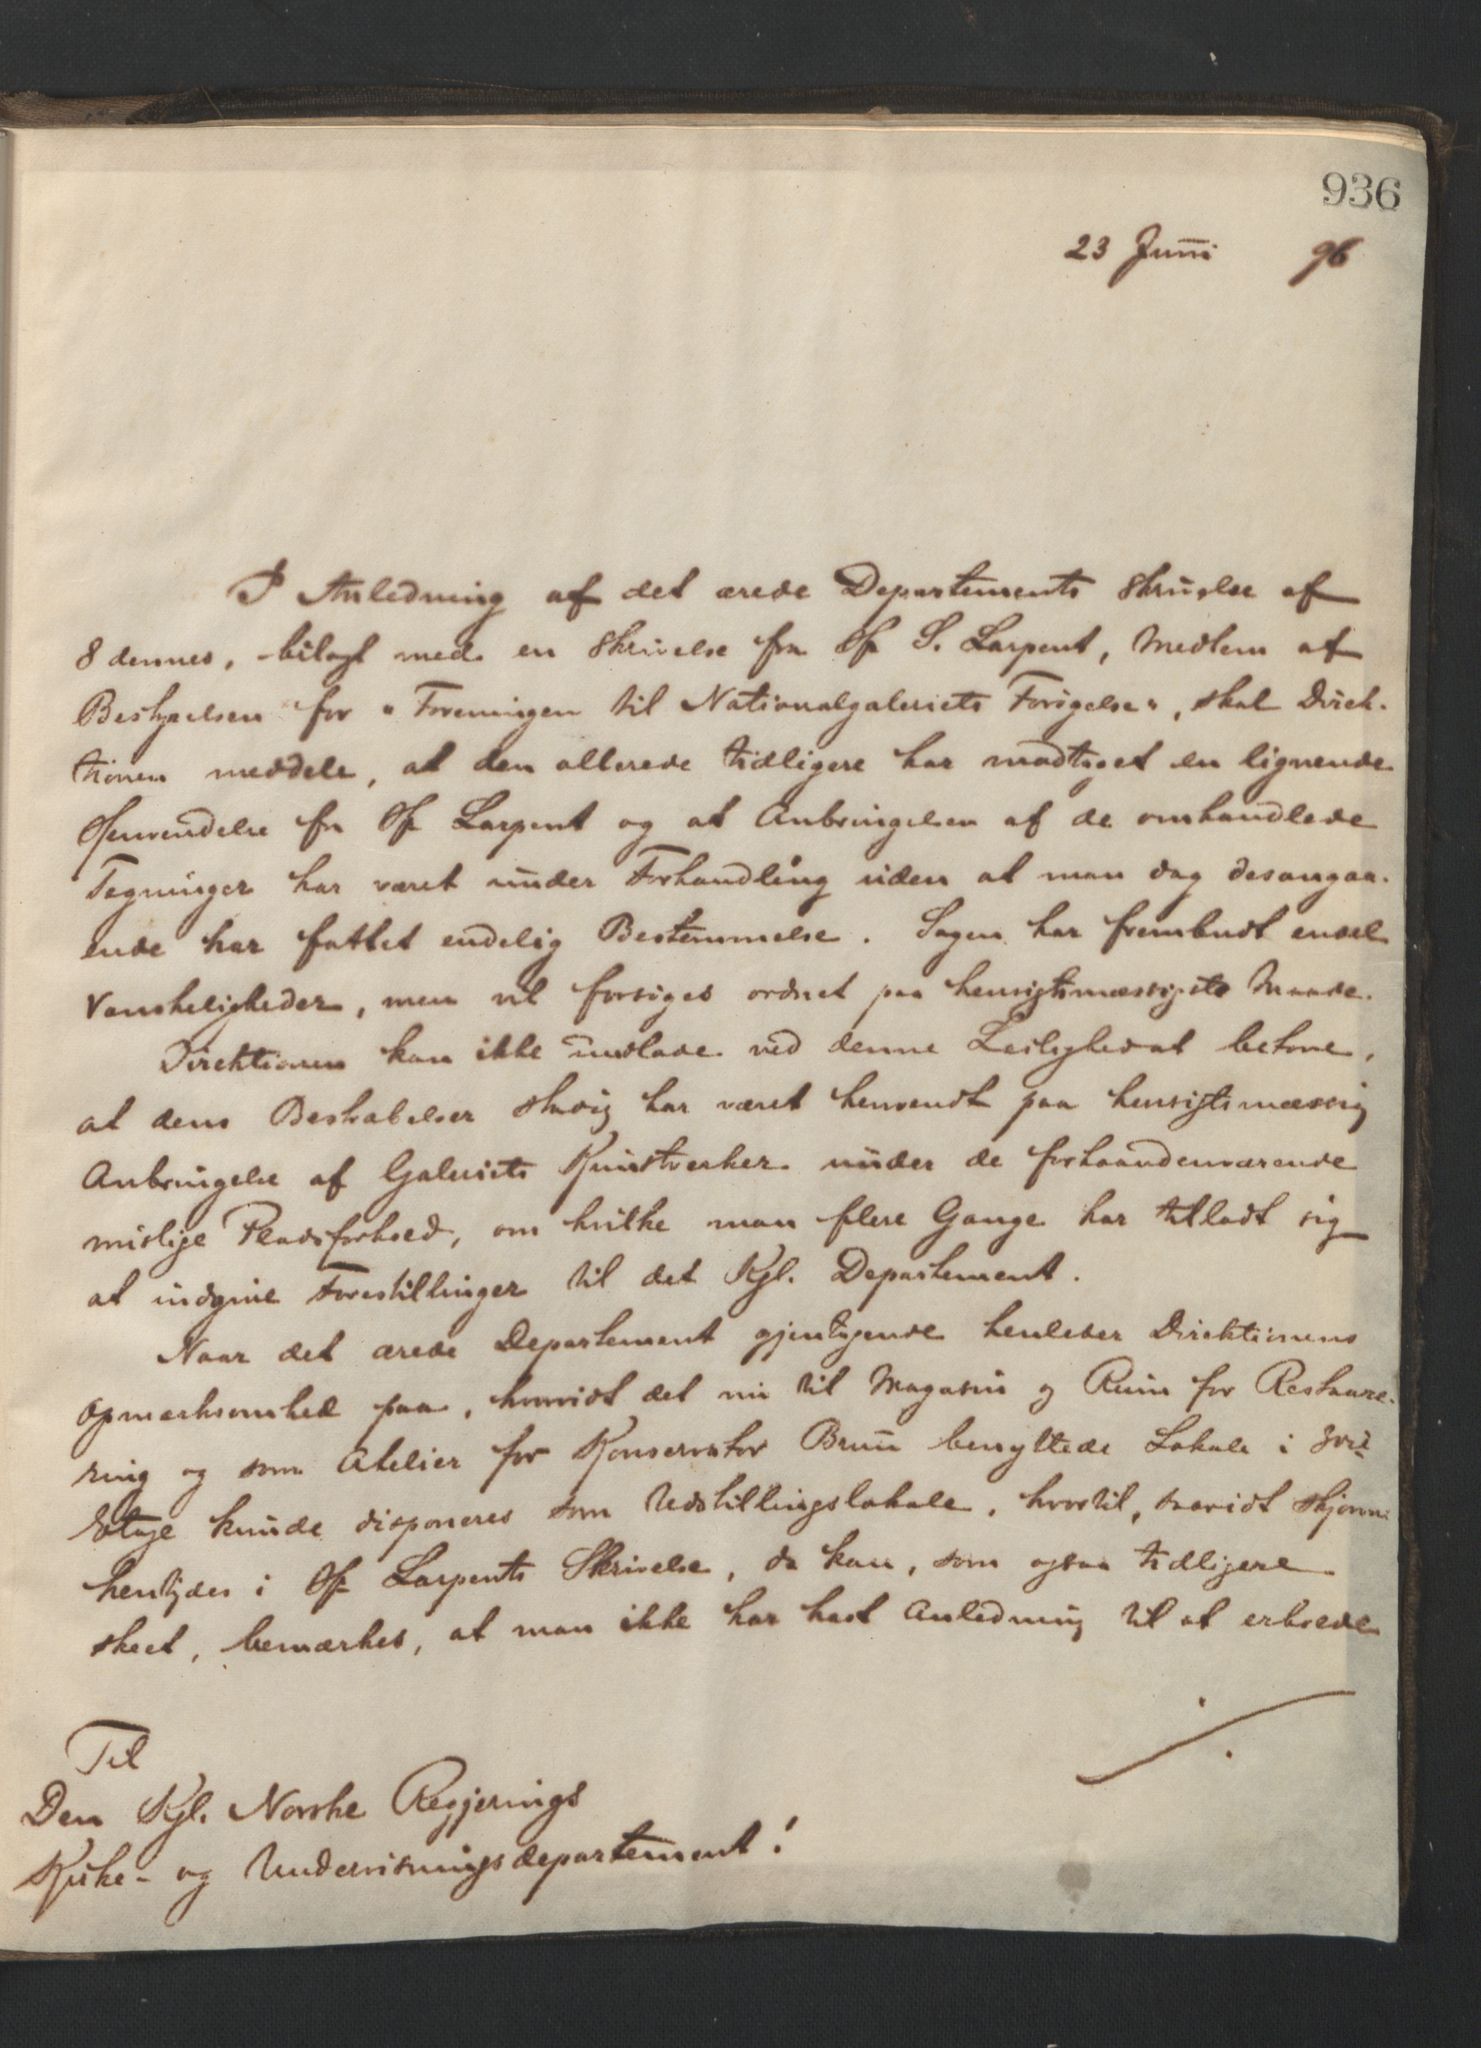 936
23 Juni 96
I Anledning af det ærede Departements Skrivelse af
8 dennes, bilagt med en Skrivelse fra Hr S. Larpent, Medlem af
Bestyrelsen for „Foreningen til Nationalgaleriets Forøgelse“, skal Direk-
tionen meddele, at den allerede tidligere har modtaget en lignende
Henvendelse fra Hr Larpent og at Anbringelsen af de omhandlede
Tegninger har været under Forhandling uden at man dog desangaa-
ende har fattet endelig Bestemmelse. Sagen har frembudt endel
Vanskeligheder, men vil forsøges ordnet paa hensigtsmæssigste Maade.
Direktionen kan ikke undlade ved denne Leilighed at betone,
at dens Bestræbelser stadig har været henvendt paa hensigtsmæssig
Anbringelse af Galeriets Kunstverker under de forhaandenværende
mislige Pladsforhold, om hvilke man flere Gange har tilladt sig
at indgive Forestillinger til det Kgl. Departement.
Naar det ærede Departement gjentagende henleder Direktionens
Opmærksomhed paa, hvorvidt det nu til Magasin og Rum for Restaure-
ring og som Atelier for Konservator Bruun benyttede Lokale i
Etage kunde disponeres som Udstillingslokale, hvortil, saavidt skjønnes
hentydes i Hr Larpents Skrivelse, da kan, som ogsaa tidligere
skeet, bemærkes, at man ikke har havt Anledning til at erholde
./.
Til
Den Kgl. Norske Regjerings
Kirke- og Undervisningsdepartement!